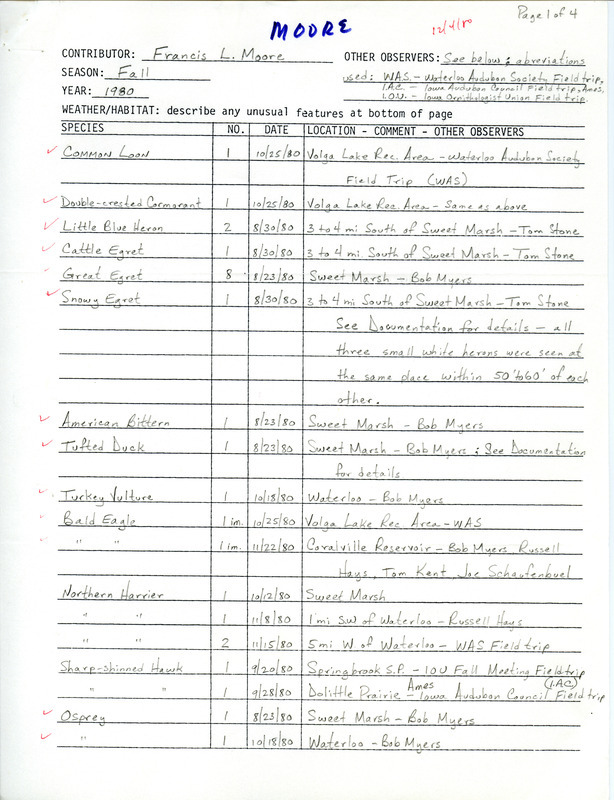 Page 1 of 4
MOORE
12/4/80
CONTRIBUTOR: Francis L. Moore
OTHER OBSERVERS: See below; abreviations
SEASON: Fall
used: WAS. - Waterloo Audubon Society Field trip,
I.A.C. - Iowa Audubon Council Field trip, Ames,
YEAR: 1980
I.O.U. - Iowa Ornithologist Union Field trip.
WEATHER/HABITAT: describe any unusual features at bottom of page
SPECIES NO. DATE LOCATION - COMMENT - OTHER OBSERVERS
Common Loon 1 10/25/80 Volga Lake Rec. Area - Waterloo Audubon Society
Field Trip (WAS)
Double-crested Cormorant 1 10/25/80 Volga Lake Rec. Area - Same as above
Little Blue Heron 2 8/30/80 3 to 4 mi South of Sweet Marsh - Tom Stone
Cattle Egret 1 8/30/80 3 to 4 mi. South of Sweet Marsh - Tom Stone
Great Egret 8 8/23/80 Sweet Marsh - Bob Myers
Snowy Egret 1 8/30/80 3 to 4 mi. South of Sweet Marsh - Tom Stone
See Documentation for details - all
three small white herons were seen at
the same place within 50' to 60' of each
other.
American Bittern 1 8/23/80 Sweet Marsh - Bob Myers
Tufted Duck 1 8/23/80 Sweet Marsh - Bob Myers; See Documentation
for details
Turkey Vulture 1 10/18/80 Waterloo - Bob Myers
Bald Eagle 1 im. 10/25/80 Volga Lake Rec. Area - WAS
" " 1 im. 11/22/80 Coralville Reservoir - Bob Myers, Russell
Hays, Tom Kent, Joe Schaufenbuel
Northern Harrier 1 10/12/80 Sweet Marsh
" " 1 11/8/80 1 mi. S.W. of Waterloo - Russell Hays
" " 2 11/15/80 5 mi W of Waterloo - WAS Field trip
Sharp-shinned Hawk 1 9/20/80 Springbrook S.P. - IOU Fall Meeting Field trip
(I.A.C.)
" " 1 9/28/80 Dolittle Prairie - Ames Iowa Audubon Council Field trip
Osprey 1 8/23/80 Sweet Marsh - Bob Myers
" 1 10/18/80 Waterloo - Bob Myers